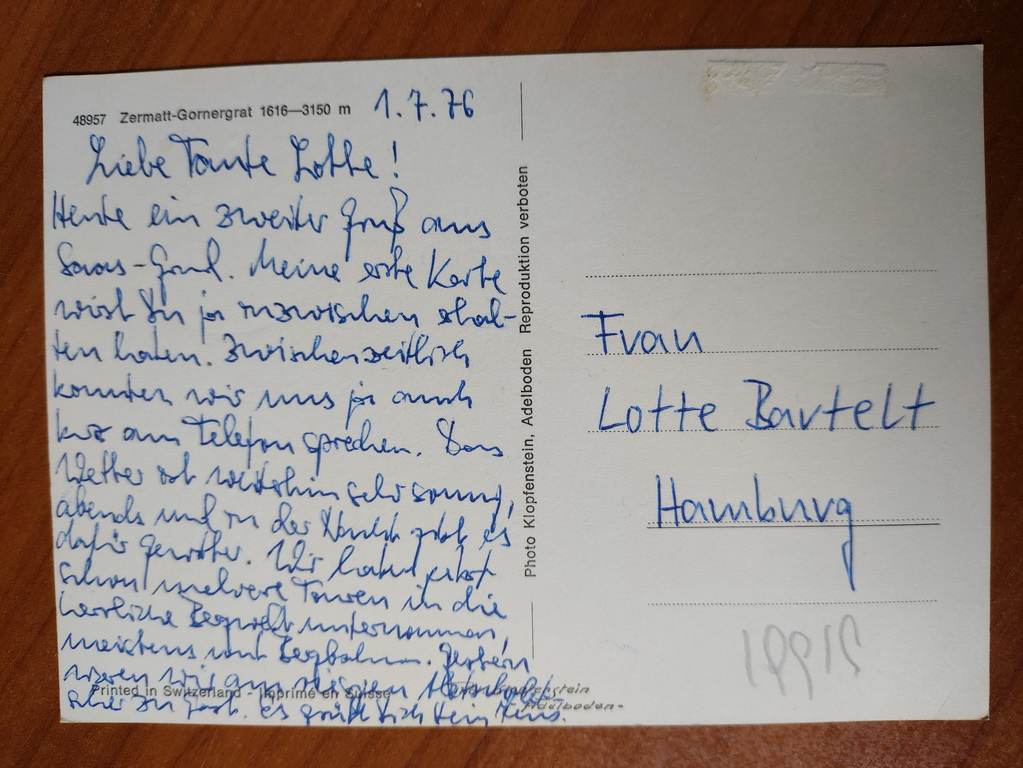 48957 Zermatt-Gornergrat 1616—3150 m 1.7.76
Liebe Tante Lotte!
Heute ein zweiter Gruß aus
Saas-Grund. Meine erste Karte
wirst Du ja inzwischen erhal-
ten haben. Zwischenzeitlich
konnten wir uns ja auch
kurz am Telefon sprechen. Das
Wetter ist weiterhin sehr sonnig,
abends und in der Nacht gibt es
dafür Gewitter. Wir haben jetzt
schon mehrere Touren in die
herrliche Bergwelt unternommen,
meistens mit Bergbahnen. Gestern
waren wir am riesigen
zu Gast. Es grüßt Dich Dein Jens.
Printed in Switzerland - Imprimé en Suisse
Adelboden
Photo Klopfenstein, Adelboden Reproduktion verboten
Frau
Lotte Bartelt
Hamburg